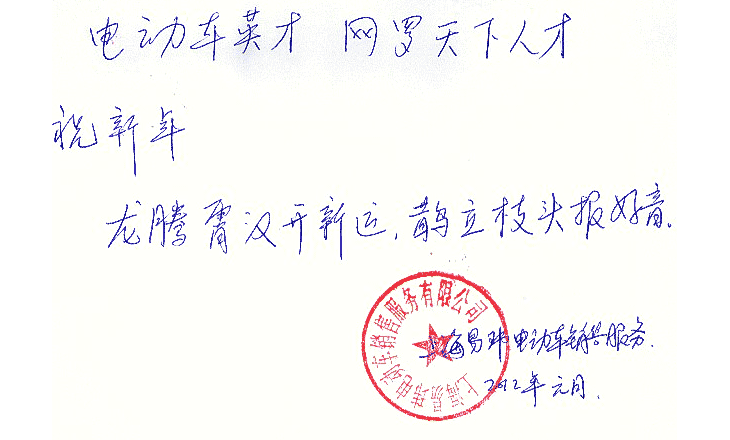 电动车英才 网罗天下人才
祝新年
龙腾霄汉开新运,鹊立枝头报好音.
上海易玮电动车销售服务有限公司
上海易玮电动车销售服务.
2012年元月.